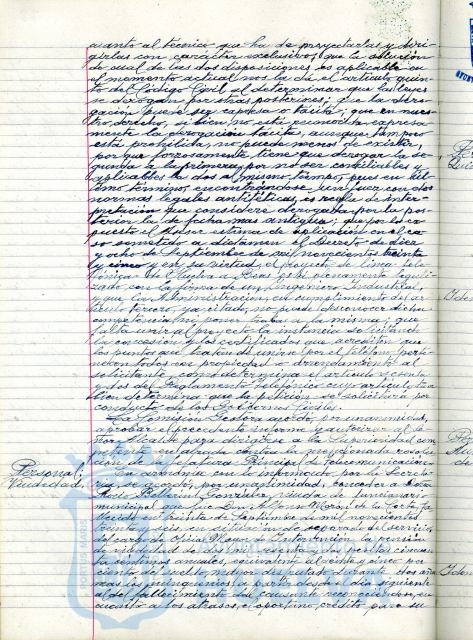 asunto al técnico que ha de proyectarlas y diri-
girlas con carácter exclusivo; que la solución
de cual de las dos disposiciones es aplicable en
el momento actual nos la da el artículo quin-
to del Código Civil al determinar que las leyes
se derogan por otras posteriores, y que la dero-
gación puede ser expresa o tácita; que en nues-
tro derecho, si bien, no está reconocida expresa-
mente la derogación tácita, aunque tampoco
está prohibida, no puede menos de existir,
porque forzosamente tiene que derogar la se-
gunda a la primera, por no ser conciliables ni
aplicables las dos al mismo tiempo, pues en úl-
timo término, encontrándose un juez con dos
normas legales antitéticas, es regla de inter-
pretación que considere derogada por la pos-
terior la de fecha más antigua; que por lo ex-
puesto el Asesor estima de aplicación en el ca-
so sometido a dictamen el Decreto de diez
y ocho de Septiembre de mil novecientos treinta
y cinco y en su virtud, el proyecto de línea tele-
fónica de Elche a Beas está plenamente legali-
zado con la firma de un Ingeniero Industrial,
y que la Administración, en cumplimiento del ar-
tículo tercero ya citado, no puede desconocer dicha
competencia ni poner trabas a la misma; que
falta unir al proyecto la instancia solicitando
la concesión y los certificados que acrediten que
los puntos que tratan de unirse por el teléfono perte-
necen todos con propiedad o arrendamiento al
solicitante a fin de que exija el artículo sesenta
y dos del Reglamento Telefónico cuyo artículo tam-
bién determina que la petición se solicitará por
conducto de los Gobiernos Civiles.
La Comisión Gestora acordó por unanimidad,
aprobar el precedente informe y autorizar al se-
ñor Alcalde para dirigirse a la Superioridad com-
petente en alzada contra la mencionada resolu-
ción de la Jefatura Principal de Telecomunicación.
Personal:
Viudedad
De acuerdo con lo informado por la Secreta-
ría se acordó, por unanimidad, conceder a Doña
Rocío Ballerini González, viuda de funcionario
municipal que fue Don Alfonso Morón de la Corte, fa-
llecido en treinta de Septiembre de mil novecientos
treinta y seis en situación de separado del servicio,
del cargo de Oficial Mayor de Intervención la pensión
de viudedad de dos mil sesenta y dos pesetas cincuen-
ta céntimos anuales, equivalente al veinte y cinco por
ciento del sueldo mayor disfrutado durante dos años
más los quinquenios, a partir desde el día siguiente
al del fallecimiento del causante, reconociéndose, en
cuanto a los atrasos, el oportuno crédito para su